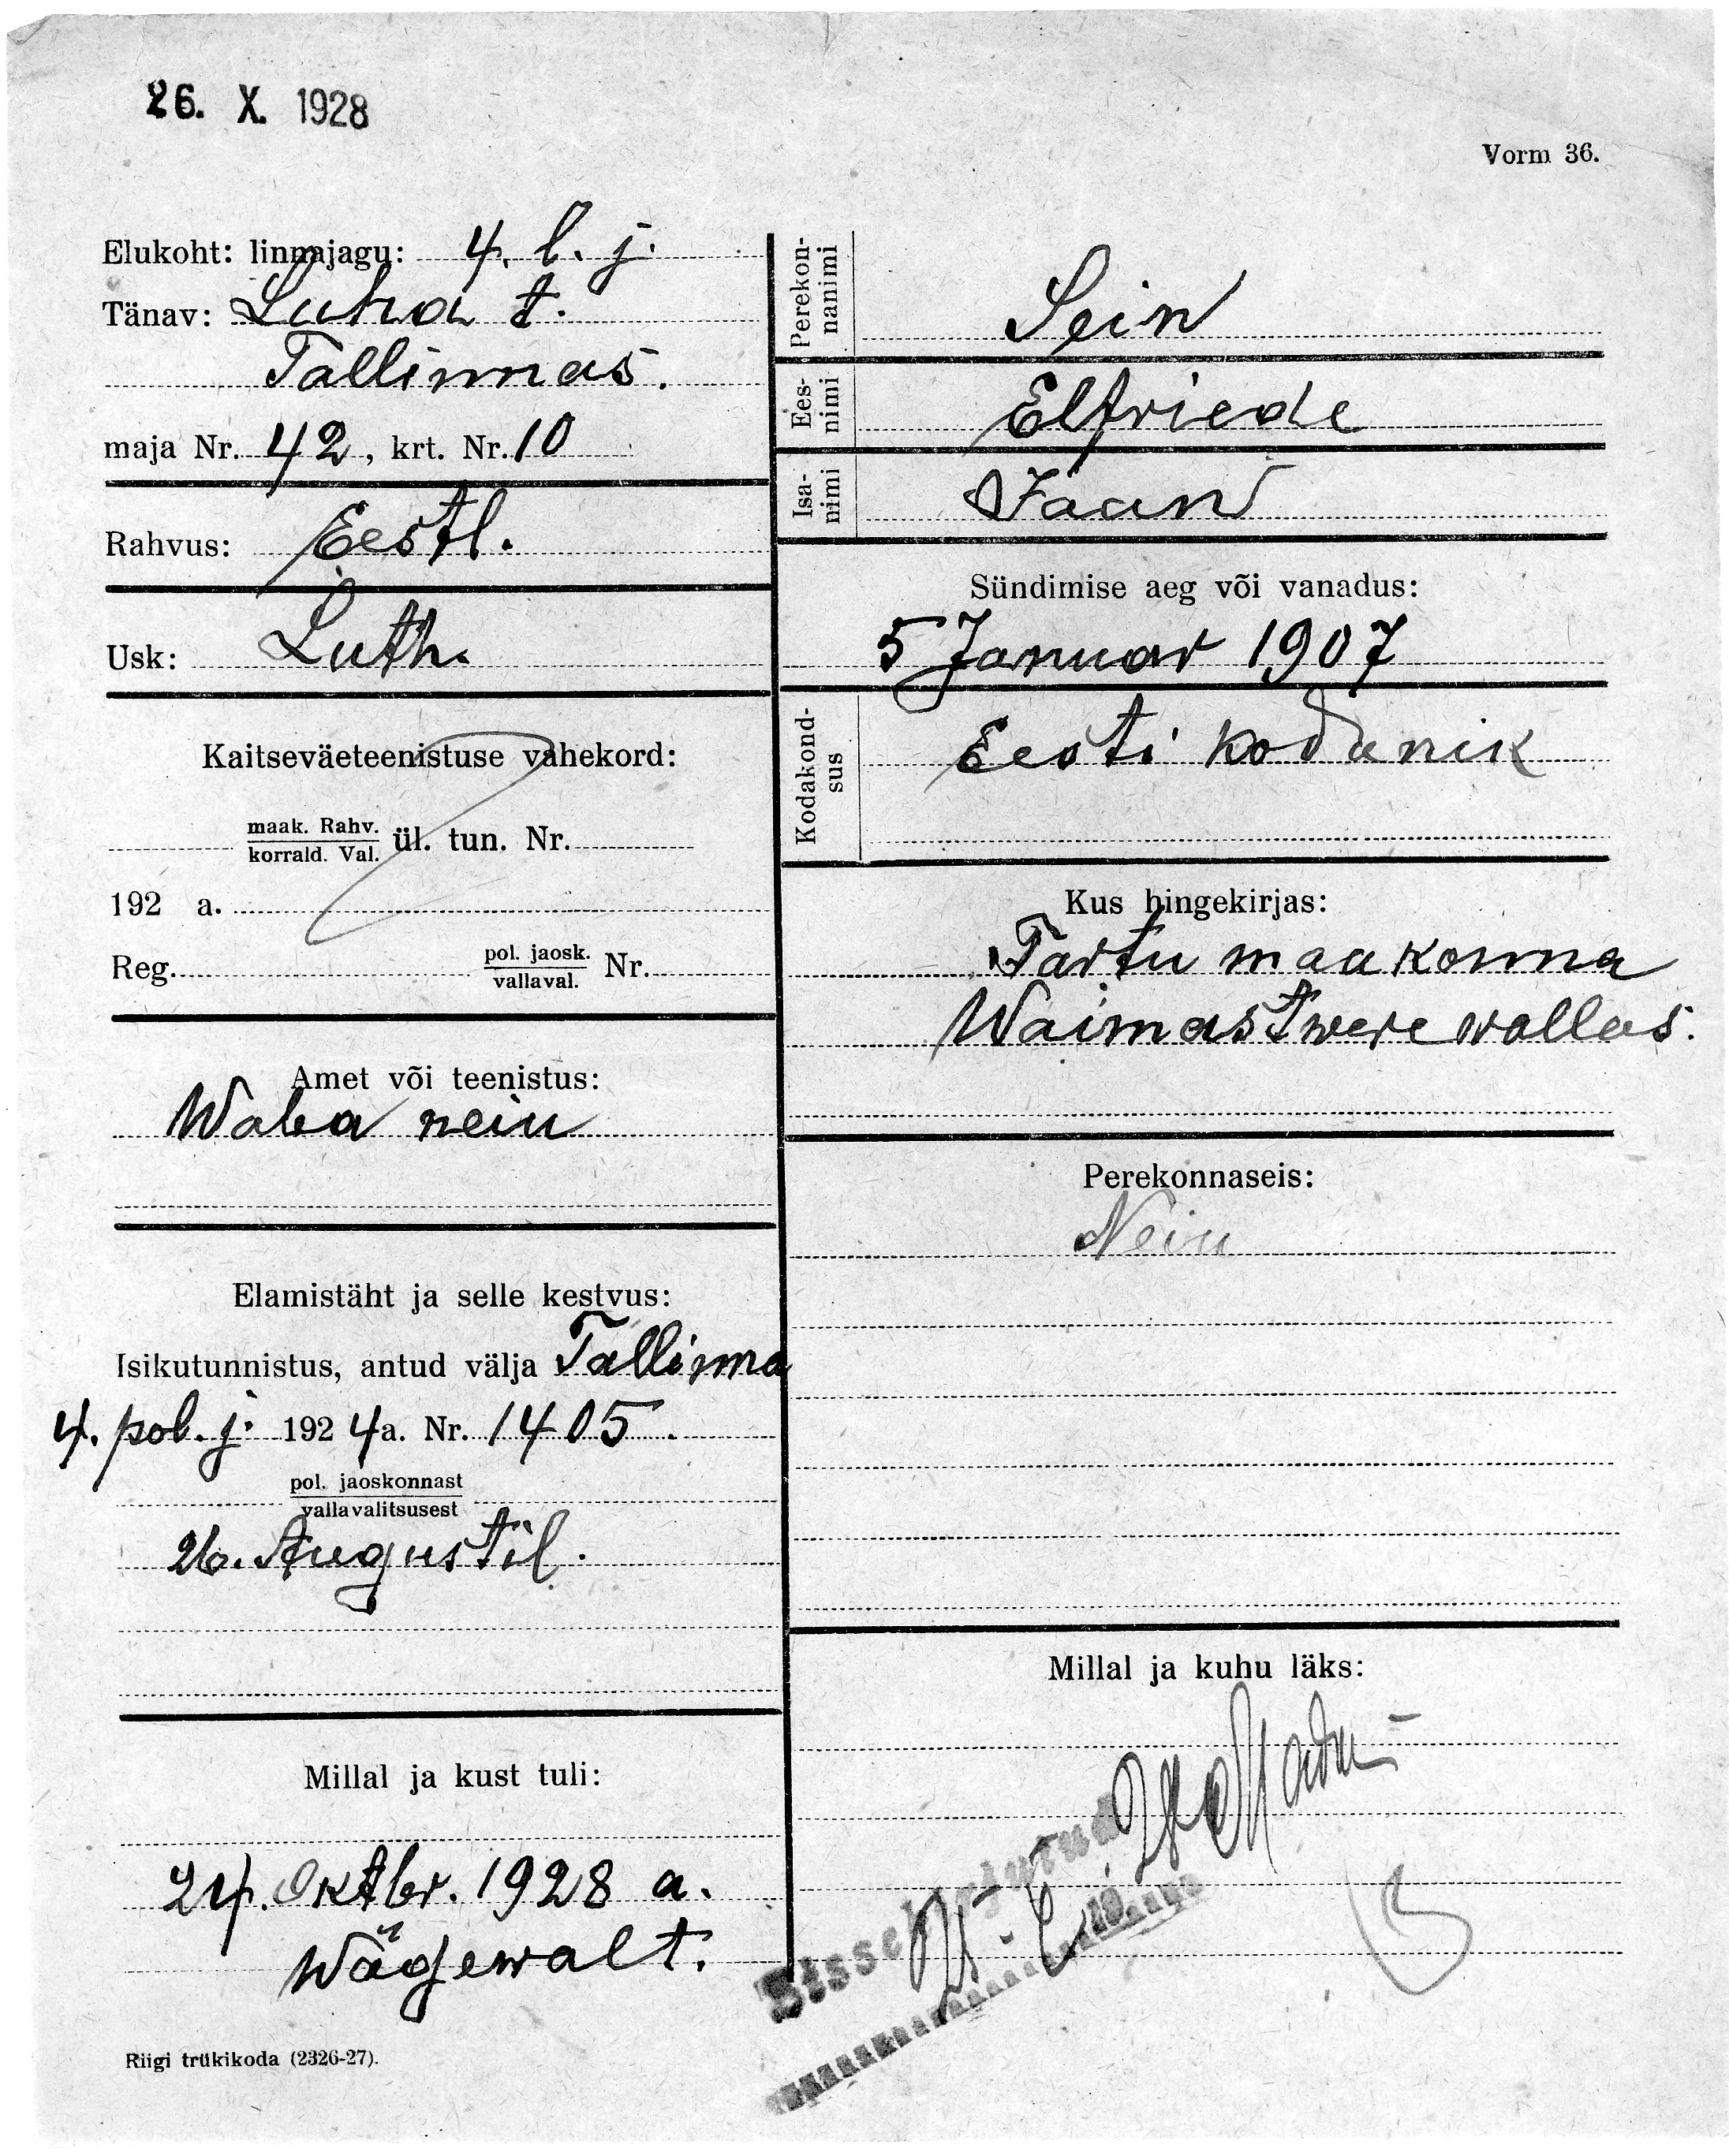 26. X. 1928
Vorm 36.
Elukoht: linnajagu: 4. l. j.
Tänav: Luha t.
Tallinnas.
maja Nr. 42, krt. Nr. 10
Rahvus: Eestl.
Usk: Luth.
Kaitseväeteenistuse vahekord:
maak. Rahv.
korrald. Val. ül. tun. Nr.
192 a.
Reg. pol. jaosk. Nr.
vallaval.
Amet või teenistus:
Waba neiu
Elamistäht ja selle kestvus:
Isikutunnistus, antud välja Tallinna
4. pol. j. 1924a. Nr. 1405.
pol. jaoskonnast
vallavalitsusest
26. Augustil.
Millal ja kust tuli:
24. Oktbr. 1928 a.
Wägewalt.
Riigi trükikoda (2326-27).
Perekon-
nanimi
Sein
Ees-
nimi
Elfriede
Isa-
nimi
Jaan
Sündimise aeg või vanadus:
5 Januar 1907
Kodakond-
sus
Eesti kodanik
Kus hingekirjas:
Tartu maakonna
Waimastwere wallas.
Perekonnaseis:
Neiu
Millal ja kuhu läks:
Sissekirjutud
19